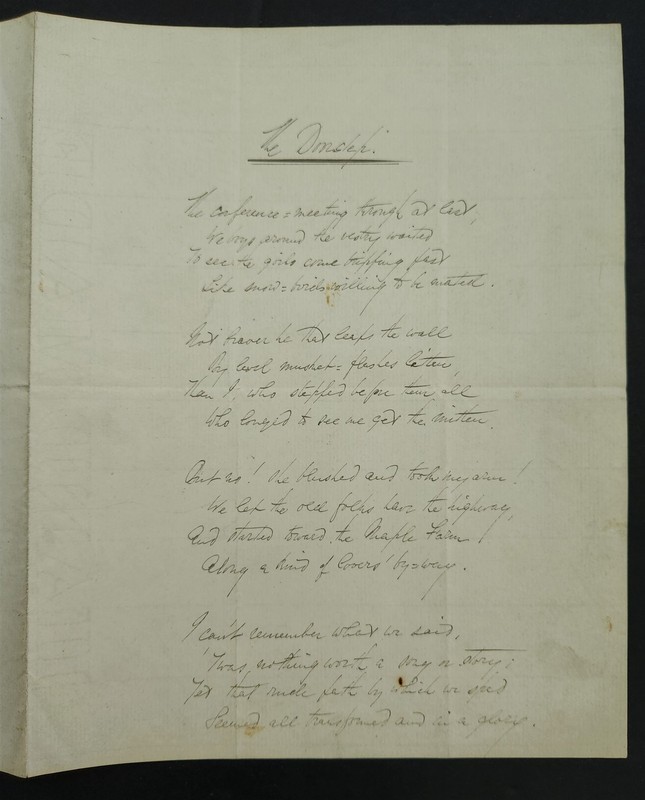 The Doorstep.
The conference=meeting through at last,
We boys around the vestry waited
To see the girls come tripping past
Like snow=birds willing to be mated.
Not braver he that leaps the wall
By level musket=flashes litten,
Than I, who stepped before them all
Who longed to see me get the mitten.
But no! she blushed and took my arm!
We let the old folks have the highway,
And started toward the Maple Farm
Along a kind of lovers' by=way.
I can't remember what we said,
'Twas nothing worth a song or story;
Yet that rude path by which we sped
Seemed all transformed and in a glory.